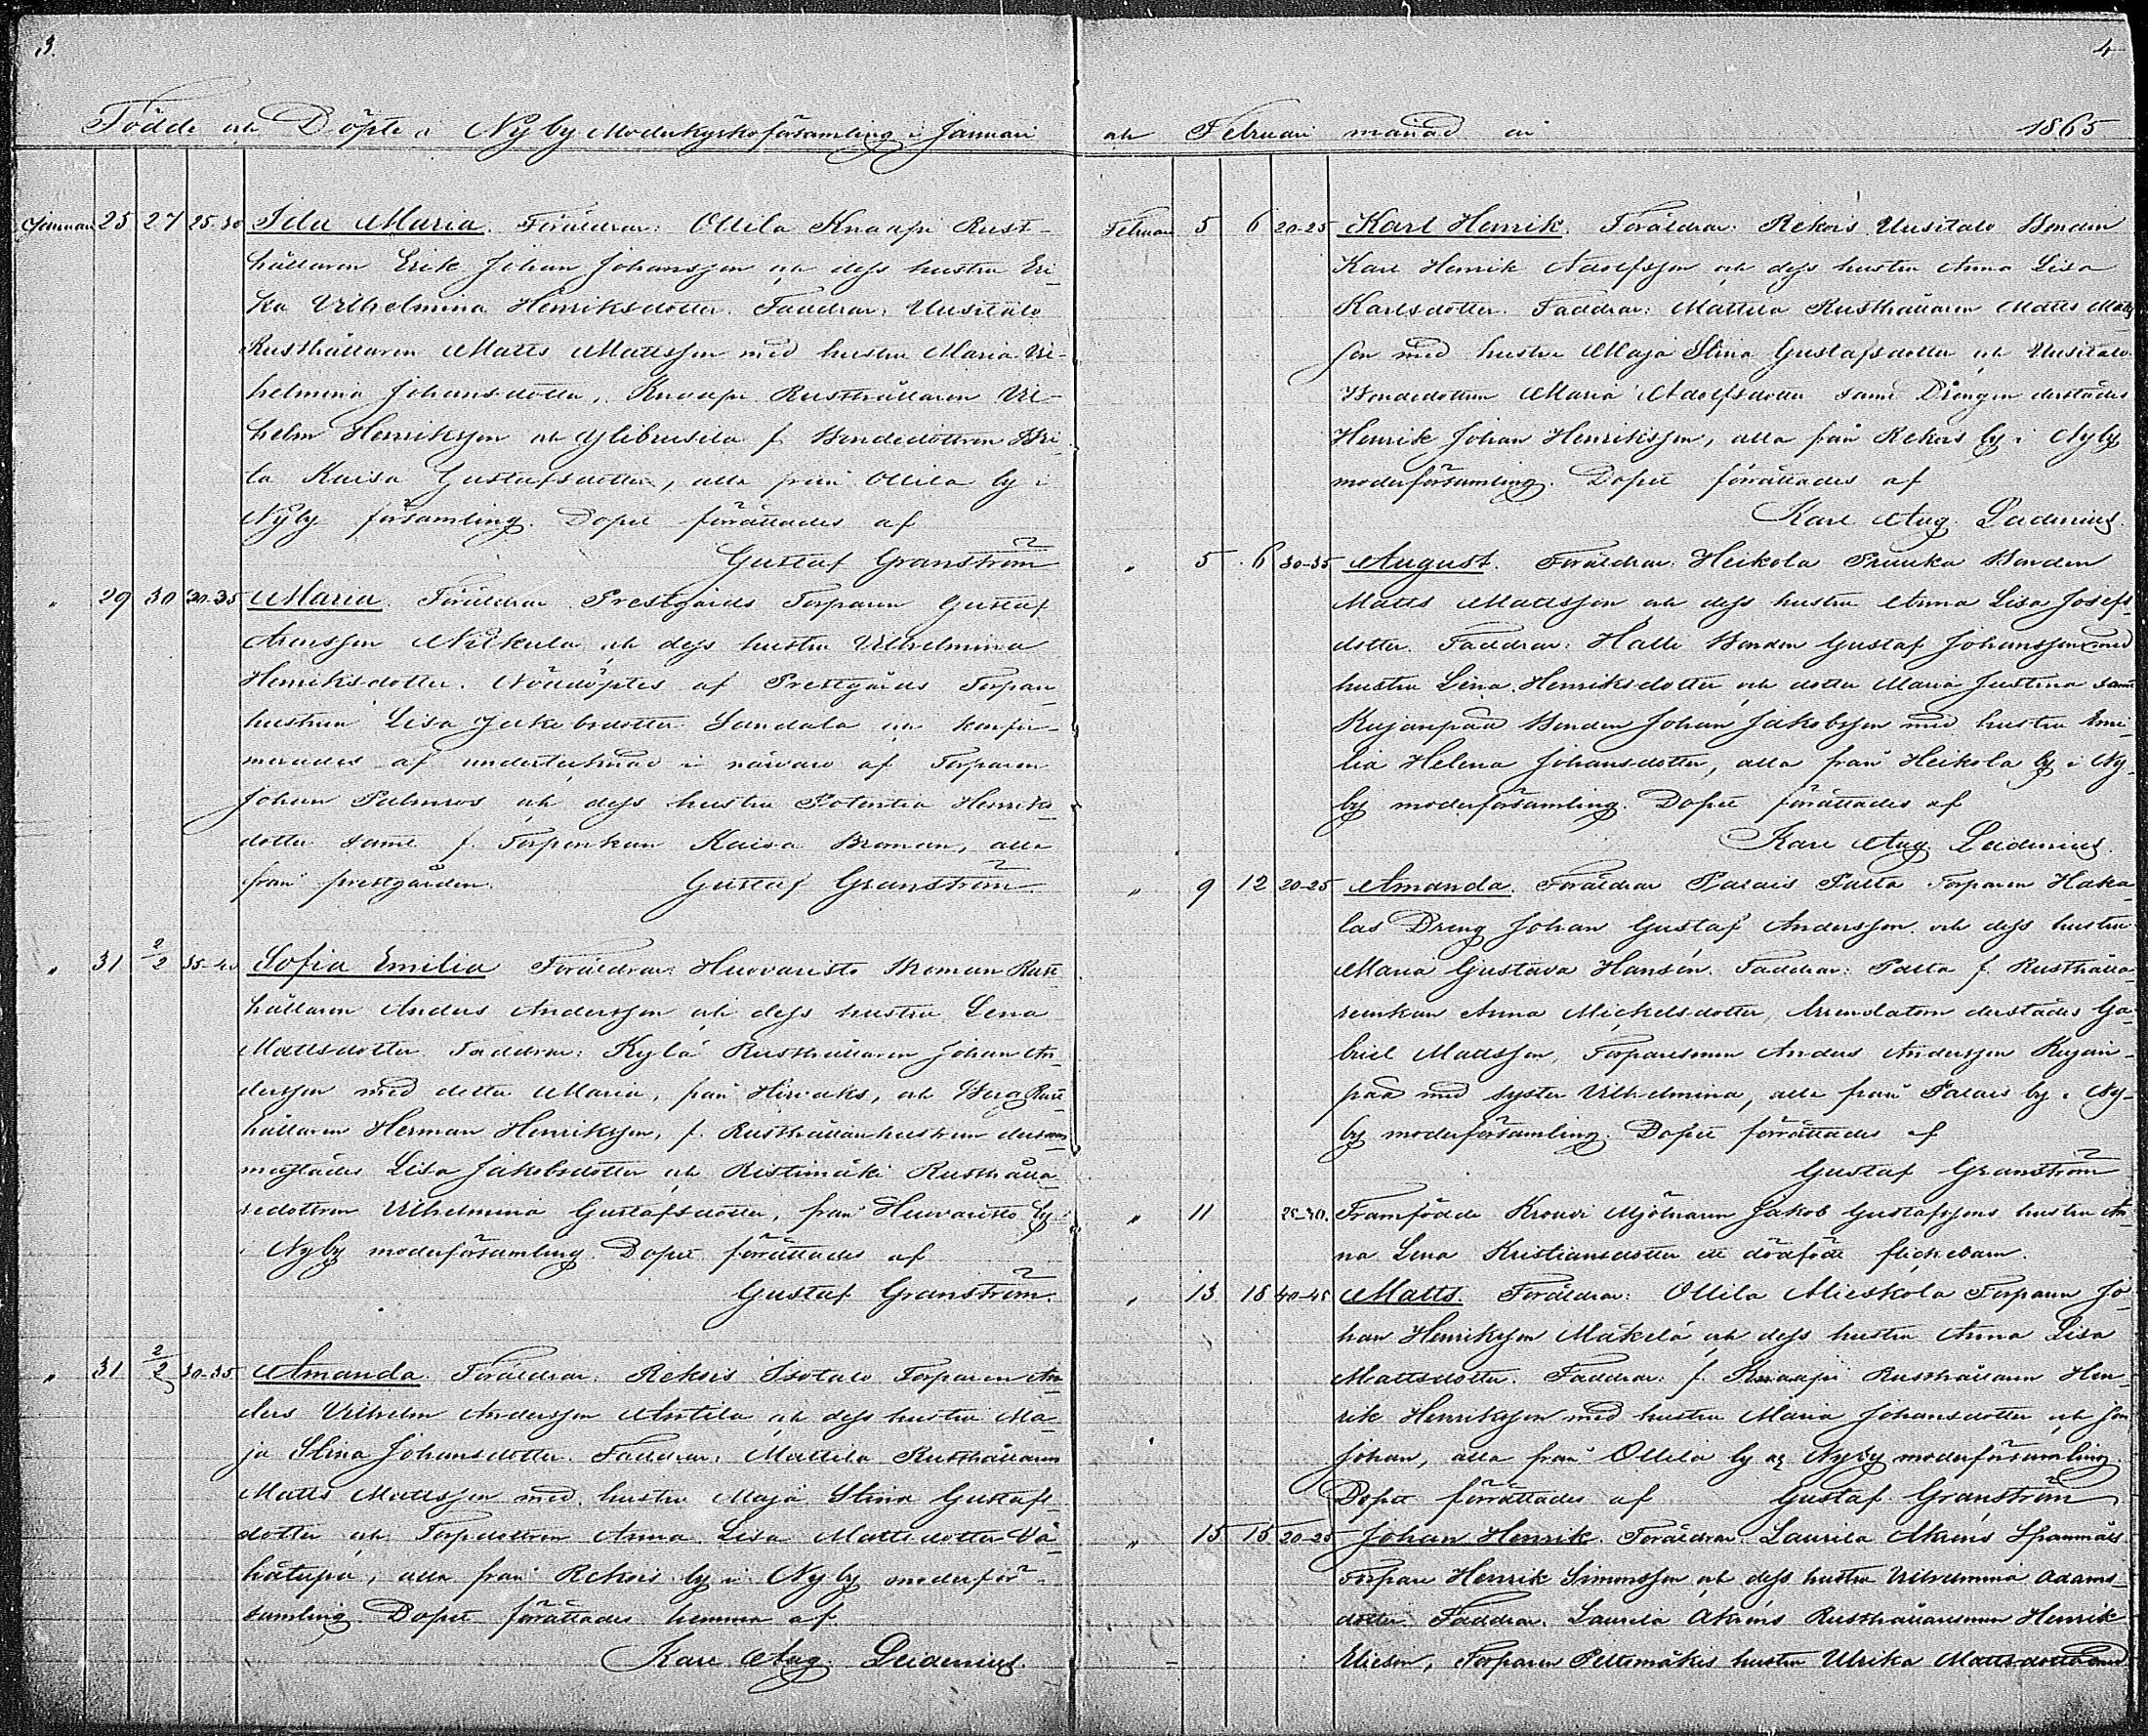 3.
Födde och Döpte i Nyby Moderkyrkoförsamling i Januari
Januari 25 27 25-30 Ida Maria. Föräldrar: Ollila Knaapi Rust-
hållaren Erik Johan Johansson och dess hustru Eri-
ka Vilhelmina Henriksdotter. Faddrar: Uusitalo
Rusthållaren Matts Mattsson med hustru Maria Vil-
helmina Johansdotter, Knaapi Rusthållaren Vil-
helm Henriksson och Ylibrusila f. Bondedottren
la Kaisa Gustafsdotter, alla från Ollila by i
Nyby församling. Dopet förrättades af
Gustaf Granström
" 29 30 30-35 Maria. Föräldrar Prestgårds Torparen Gustaf
Arensson Nikkula och dess hustru Vilhelmina
Henriksdotter. Nöddöptes af Prestgårds Torpare
hustrun Lisa Jakobsdotter Sandala och konfir-
merades af undertecknad i närvaro af Torparen
Johan Palmros och dess hustru Potentia Henriks
dotter samt f. Torparskan Kaisa Broman, alla
från prestgården. Gustaf Granström
" 31 2/2 35-40 Sofia Emilia Föräldrar: Huovaristo Skoman Rust
hållaren Anders Andersson och dess hustru Lena
Mattsdotter. Faddrar: Kylä Rusthållaren Johan An-
dersson med dotter Maria, från Hirvaks, och Berg Rust
hållaren Herman Henriksson, f. Rusthållarehustrun
městädes Lisa Jakobsdotter och Ristimäki Rusthålla
redottren Vilhelmina Gustafsdotter, från Huovaristo by
i Nyby moderförsamling. Dopet förrättades af
Gustaf Granström.
" 31 2/2 30-35 Amanda. Föräldrar: Rekois Isotalo Torparen An
ders Vilhelm Andersson Anttila och dess hustru Ma-
ja Stina Johansdotter. Faddrar: Mattila Rusthållaren
Matts Mattsson med hustru Maja Stina Gustafs-
dotter och Torpdottren Anna Lisa Mattsdotter Vä-
hätupa, alla från Rekois by i Nyby moderför-
samling. Dopet förrättades hemma af
Karl Aug. Leidenius.
4
och Februari månad år 1865
Februari 5 6 20-25 Karl Henrik. Föräldrar: Rekois Uusitalo Bonden
Karl Henrik Adolfsson och dess hustru Anna Lisa
Karlsdotter. Faddrar: Mattila Rusthållaren Matts Matts
son med hustru Maja Stina Gustafsdotter och Uusitalo
Bondedottren Maria Adolfsdotter samt Drängen derstädes
Henrik Johan Henriksson, alla från Rekois by i Nyby
moderförsamling. Dopet förrättades af
Karl Aug. Leidenius.
" 5 6 30-35 August. Föräldrar: Heikola Pruuka Bonden
Matts Mattsson och dess hustru Anna Lisa Josefs-
dotter. Faddrar: Halli Bonden Gustaf Johansson med
hustru Lena Henriksdotter och dotter Maria Justina samt
Kujanpää Bonden Johan Jakobsson med hustru Emi-
lia Helena Johansdotter, alla från Heikola by i Ny-
by moderförsamling. Dopet förrättades af
Karl Aug. Leidenius.
" 9 12 20-25 Amanda. Föräldrar Palais Palta Torparen Haka
las Dreng Johan Gustaf Andersson och dess hustru
Maria Gustava Hansén. Faddrar: Palta f. Rusthålla-
renskan Anna Mickelsdotter, Arrendatorn derstädes Ga-
briel Mattsson, Torparesonen Anders Andersson Kujan-
pää med syster Vilhelmina, alla från Palais by i Ny-
by moderförsamling. Dopet förrättades af
Gustaf Granström
" 11 25-30. Framfödde Krouvi Mjölnaren Jakob Gustafssons hustru An-
na Lena Kristiansdotter ett dödfödt flickebarn.
" 13 18 40-45 Matts. Föräldrar: Ollila Mieskola Torparen Jo-
han Henriksson Mäkelä och dess hustru Anna Lisa
Mattsdotter. Faddrar: f. Knaapi Rusthållaren Hen-
rik Henriksson med hustru Maria Johansdotter och son
Johan, alla från Ollila by af Nyby moderförsamling.
Dopet förrättades af Gustaf Granström
" 15 15 20-25 Johan Henrik. Föräldrar: Laurila Spannmåls
Torpare Henrik Simonsson och dess hustru Vilhelmina Adams-
dotter. Faddrar: Laurila Rusthållaresonen Henrik
Eliesson, Torparen Peltomäkis hustru Ulrika Mattsdotter med